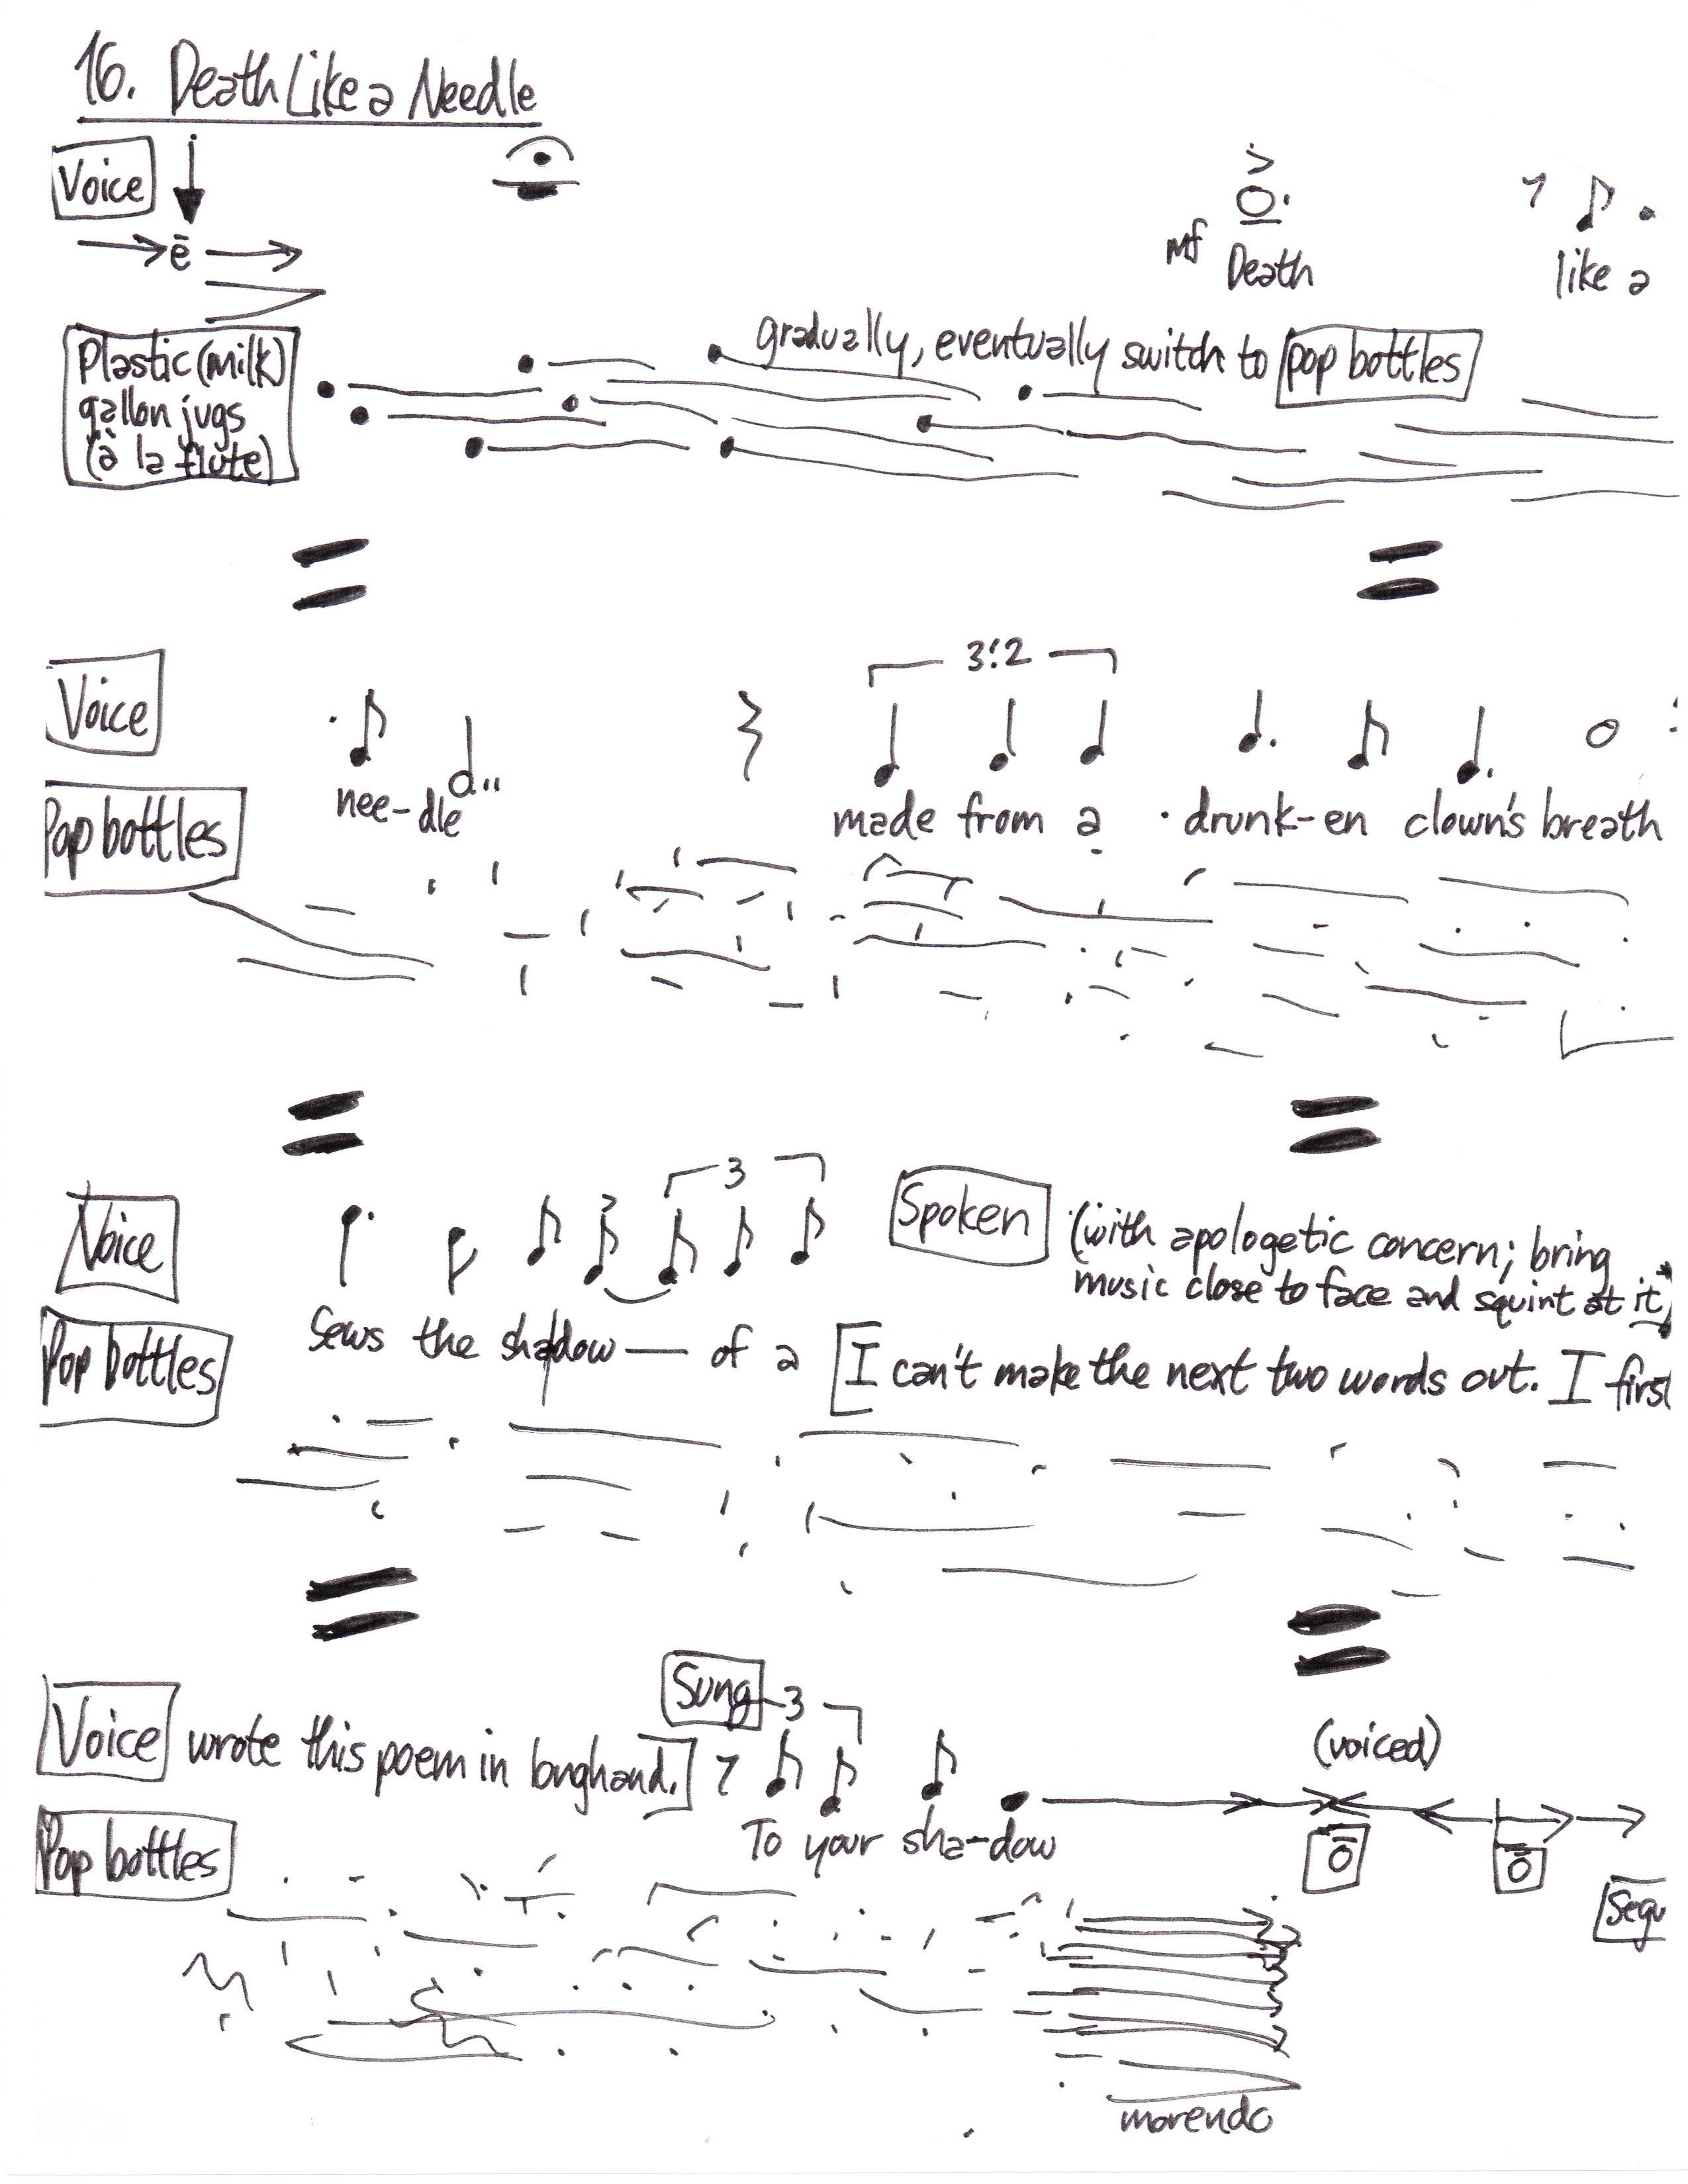 16. Death Like a Needle
Voice
ē
mf Death
like a
Plastic (milk)
gallon jugs
(à la flute)
gradually, eventually switch to pop bottles
Voice
3:2
nee-dle
made from a drunk-en clown's breath
Pop bottles
Voice
3
Spoken
(with apologetic concern; bring
music close to face and squint at it)
Sews the shadow — of a [I can't make the next two words out. I first
Pop bottles
Sung
3
Voice
wrote this poem in longhand.]
(voiced)
To your sha-dow
ō
ō
Segu
Pop bottles
morendo